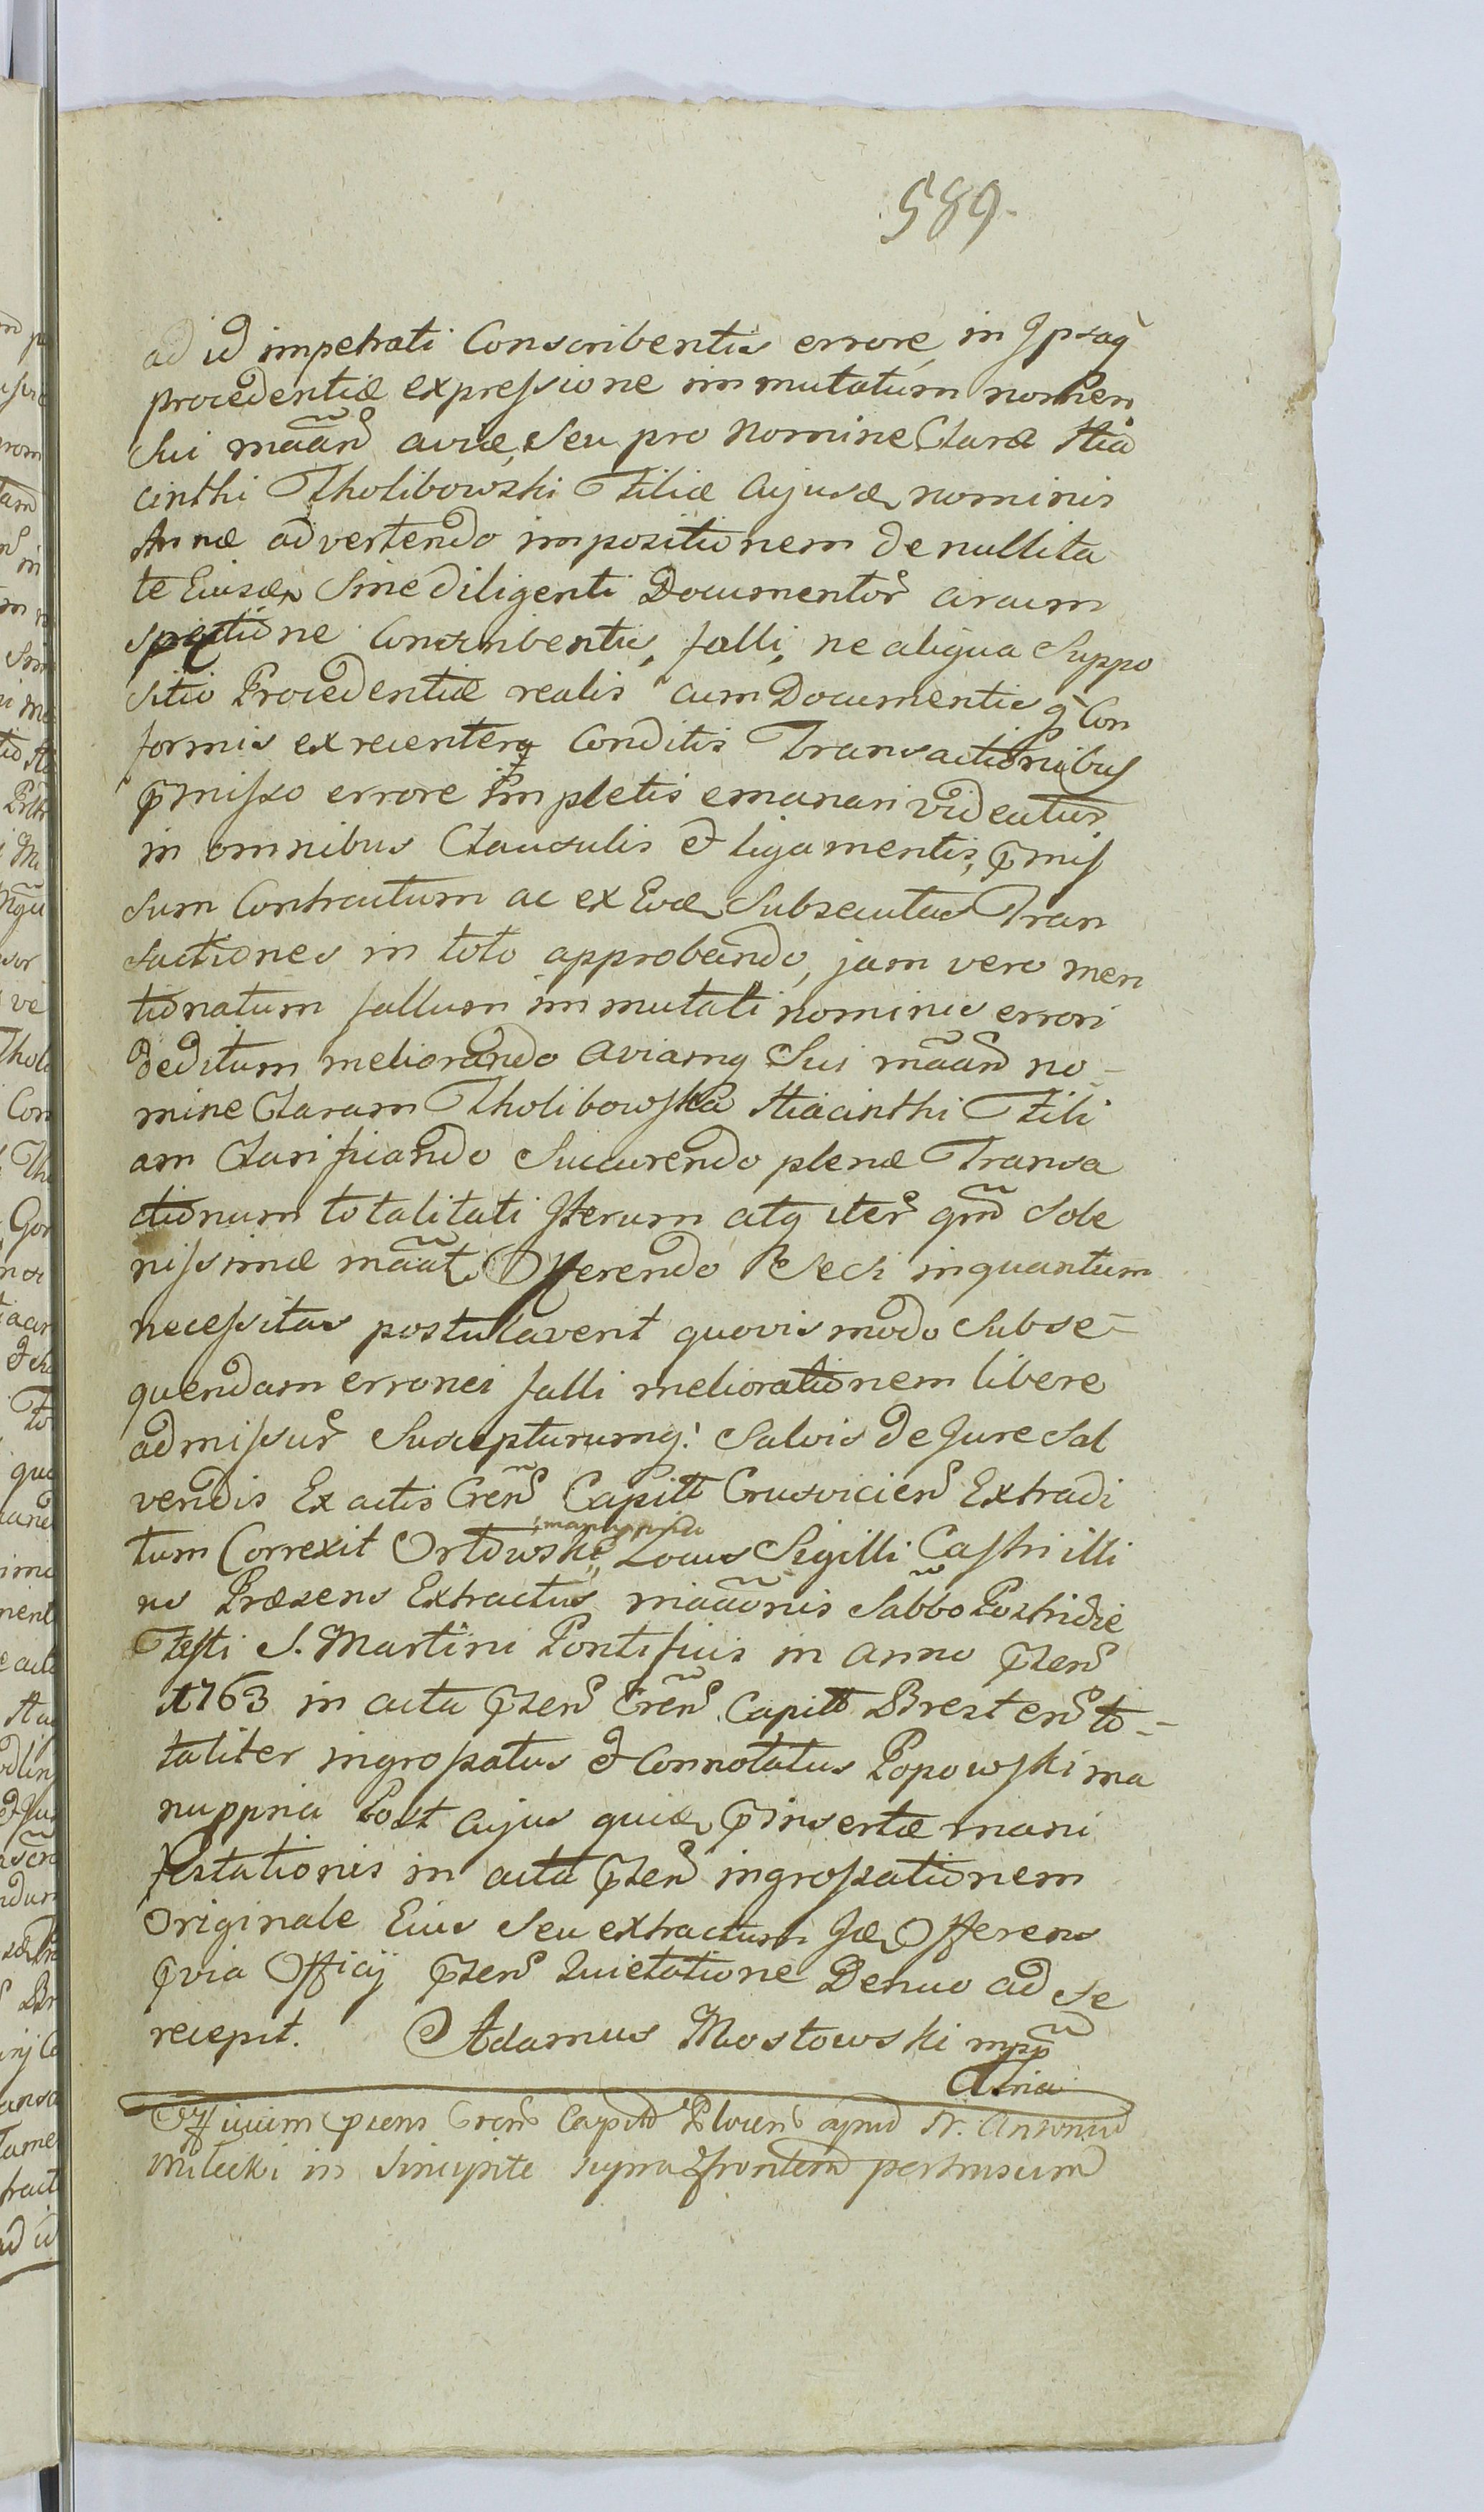 589.
ad id impetrati Conscribentis errore, in Ipsaq̃
procedentiæ expressione immutatum nomen
Sui mãan̄d aviæ, seu pro Nomine Claræ Hia
cinthi Tholibowski Filiæ Cujusd nominis
Annæ advertendo impositionem de nullita
te Eiusdem Sine diligenti Documentor̃ circum
spectione Conscribentis, falli, ne aliqua Suppo
sitio Procedentiæ realis cum Documentis q̃ Con
formis ex recenterq Conditis Transactionibus
p̃misso errore impletis emanari videatur,
in omnibus Clausulis et ligamentis, p̃mis
sum Contractum ac ex Eod Subsecutas Tran
sactiones in toto approbando, jam vero men
tionatum fallum immutati nominis errori
deditum meliorando aviamq Sui mãan̄d no-
mine Claram Tholibowska Hiacinthi Fili
am Clarificando Succurendo plenæ Transa
ctionum totalitati Iterum atq iter̃ qm̃ Sole
nissimæ mãat Offerendo Se Si inquantum
necessitas postulaverit quovis modo Subse-
quendam erronei falli meliorationem libere
admissur̃ Suscepturumq: Salvis de Jure Sal
vendis Ex actis Cren̄s Capitt Crusviciens̃ Extradi
tum Correxit Orłowski manuppria Locus Sigilli Castri illi
us Præsens Extractus mãaonis Sabbo Postridie
Festi S. Martini Pontificis in anno p̃sens̃
1763 in acta p̃sens̃ Cren̄s Capitt Brestens̃ to-
taliter ingrossatus et Connotatus Popowski ma
nuppria Post cujus quid p̃insertæ mani
festationis in acta p̃sens̃ ingrossationem
Originale Eius seu extractum Id Offerens
q̃ via Officij p̃sens̃ Quietatione Denuo ad se
recepit. Adamus Mostowski mpp̃
Officium p̃sens Cren̄s Capitt apud N. Antonium
Milecki in Sincipite supra frontem pertusum